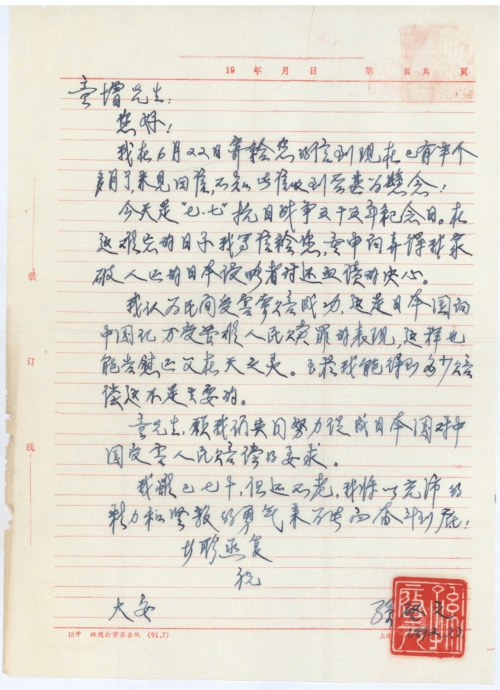 19 年 月 日 第 頁共 頁
童增先生：
您好！
我在6月22日寄给您的信到现在已有半个
多月了，未见回信，不知此信收到否甚为悬念！
今天是"七·七"抗日战争五十五年纪念日。在
这难忘的日子我写信给您，重申向弄得我家
破人亡的日本侵略者讨还血债的决心。
我认为民间受害索赔成功，这是日本国向
中国亿万受苦难人民赎罪的表现，这样也
能告慰亡父在天之灵。至于我能得到多少赔
偿这不是主要的。
童先生，愿我们共同努力促成日本国对中
国受害人民赔偿的要求。
我虽已七十，但还不老，我将以充沛的
精力和坚毅的勇气来为此而奋斗到底！
切盼函复
祝
大安
孫
装
订
线
(91.7)